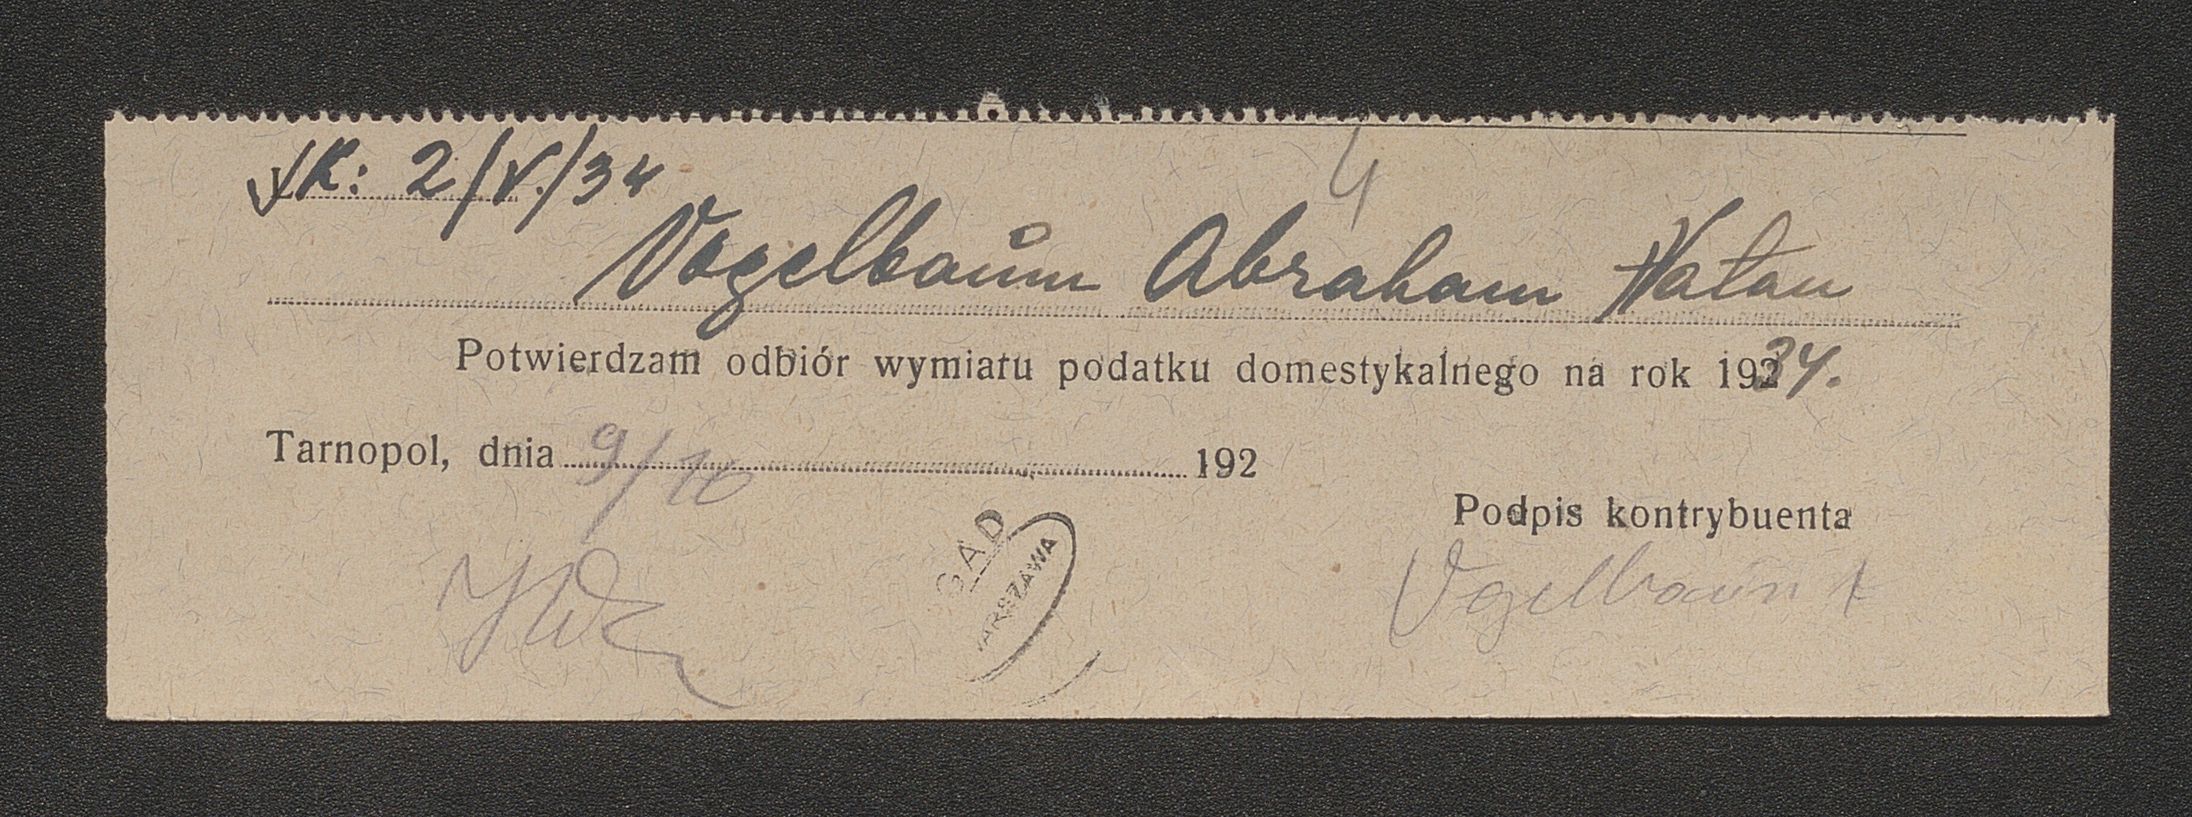 K: 2/V./34
4
Vogelbaum Abraham Natan
Potwierdzam odbiór wymiaru podatku domestykalnego na rok 19234.
Tarnopol, dnia 9/10 192
Podpis kontrybuenta
Vogelbaum A
GAD
WARSZAWA